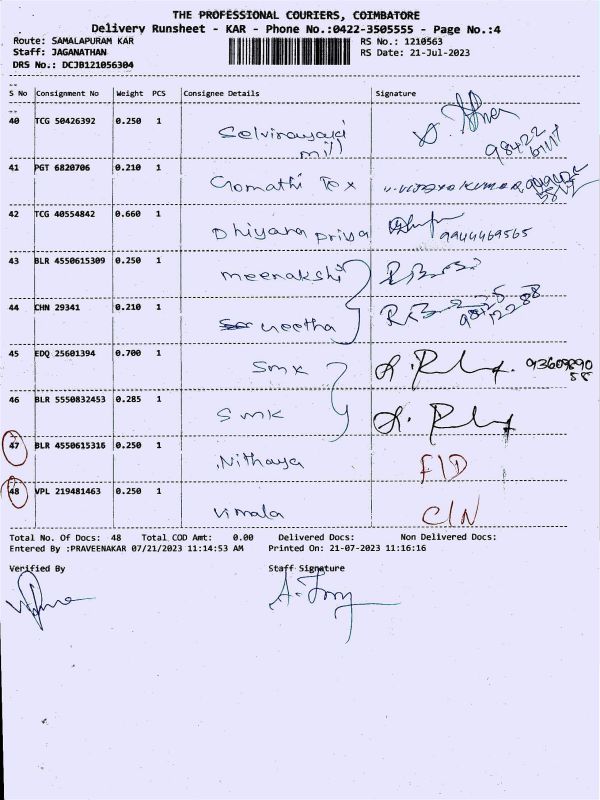 THE PROFESSIONAL COURIERS, COIMBATORE
Delivery Runsheet - KAR - Phone No.:0422-3505555 - Page No.:4
Route: SAMALAPURAM KAR RS No.: 1210563
Staff: JAGANATHAN RS Date: 21-Jul-2023
DRS No.: DCJB121056304
S No Consignment No Weight PCS Consignee Details Signature
40 TCG 50426392 0.250 1
mill 98422
41 PGT 6820706 0.210 1 Gomathi Tex
42 TCG 40554842 0.660 1 Dhiyana priya 9944469565
43 BLR 4550615309 0.250 1 meenakshi
44 CHN 29341 0.210 1 neetha
45 EDQ 25601394 0.700 1 Smx 93609890
58
46 BLR 5550832453 0.285 1 SMK
47 BLR 4550615316 0.250 1 Nithaya F/D
48 VPL 219481463 0.250 1 Vimala C/N
Total No. Of Docs: 48 Total COD Amt: 0.00 Delivered Docs: Non Delivered Docs:
Entered By :PRAVEENAKAR 07/21/2023 11:14:53 AM Printed On: 21-07-2023 11:16:16
Verified By Staff Signature